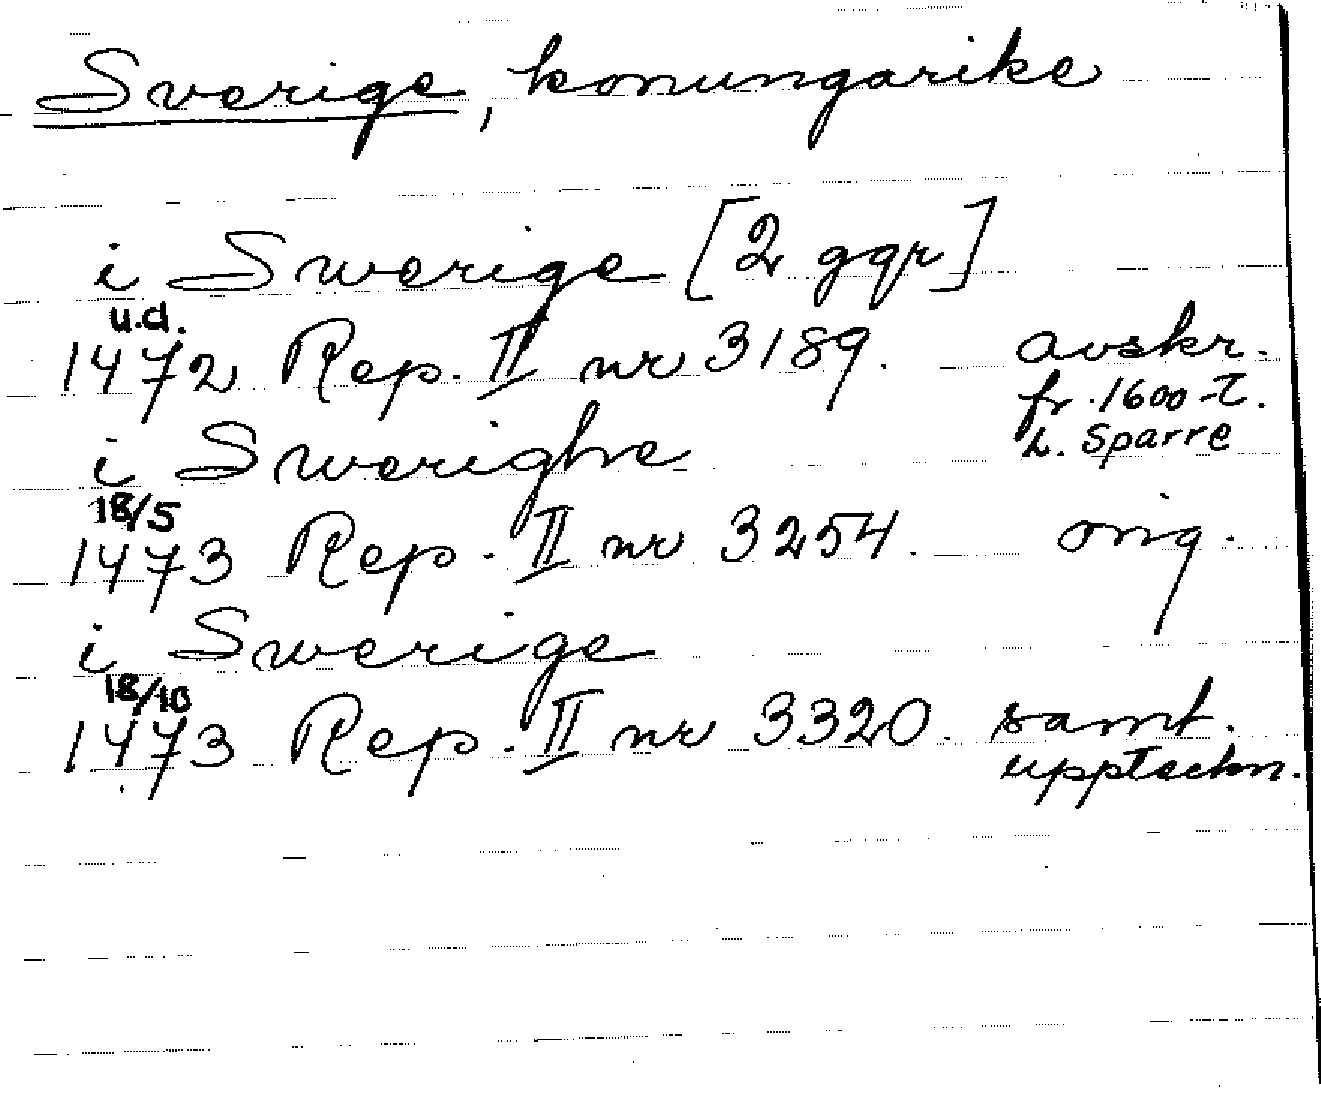 Sverige, konungarike
i Swerige [2 ggr]
u.d.
1472 Rep. II nr 3189. avskr.
fr. 1600-t.
L. Sparre
i Swerighe
18/5
1473 Rep. II nr 3254. orig.
i Swerige
18/10
1473 Rep. II nr 3320. samt.
uppteckn.